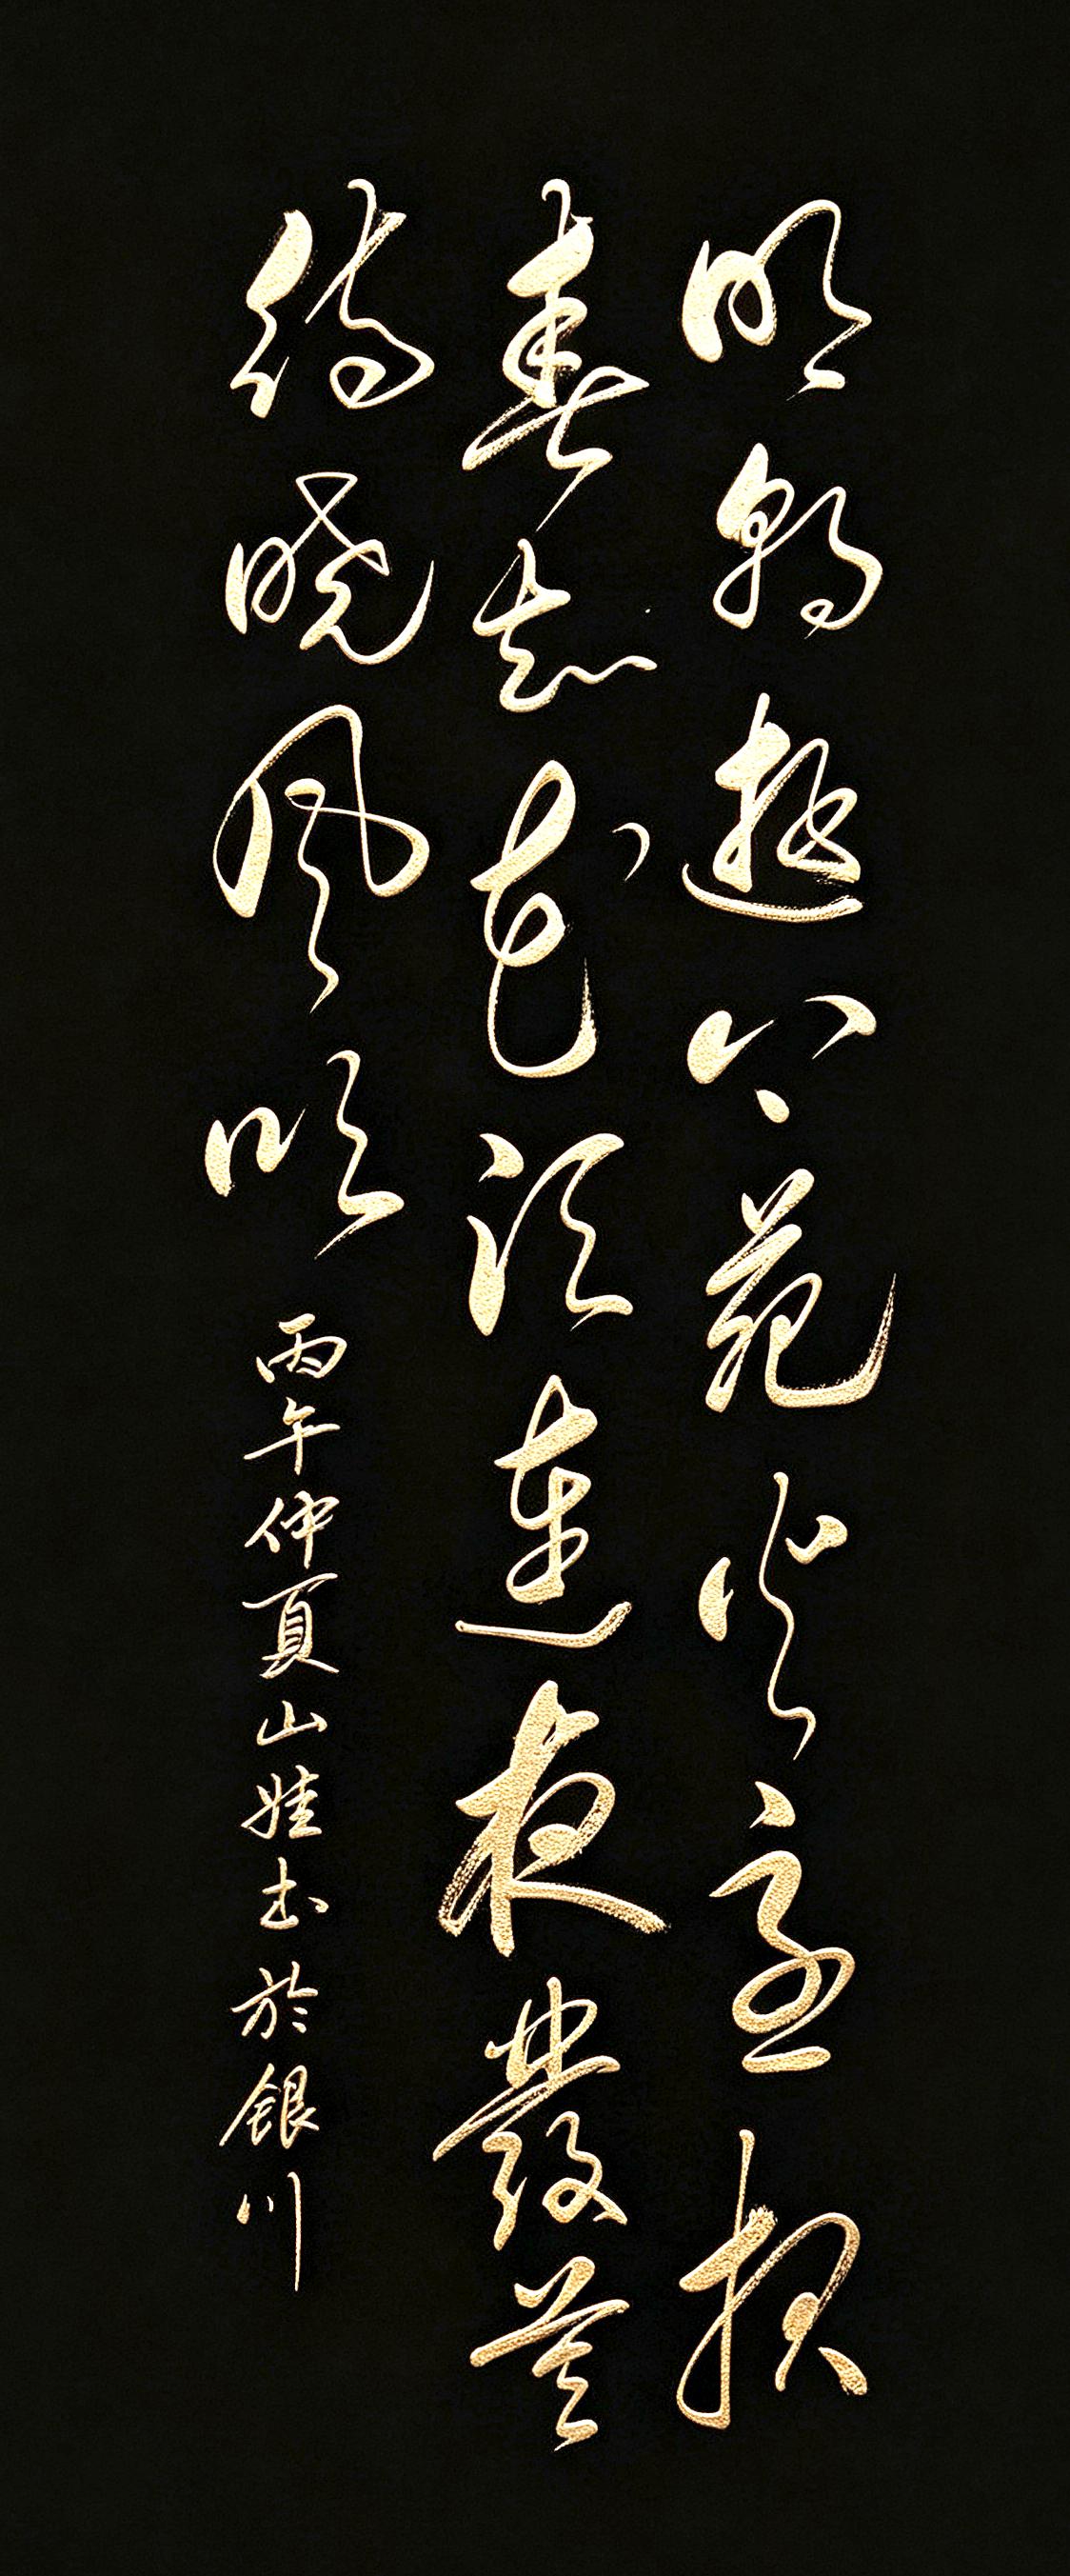 明朝遊上苑火急报
春知花须連夜發莫
待晓风吹
丙午仲夏山娃书於銀川